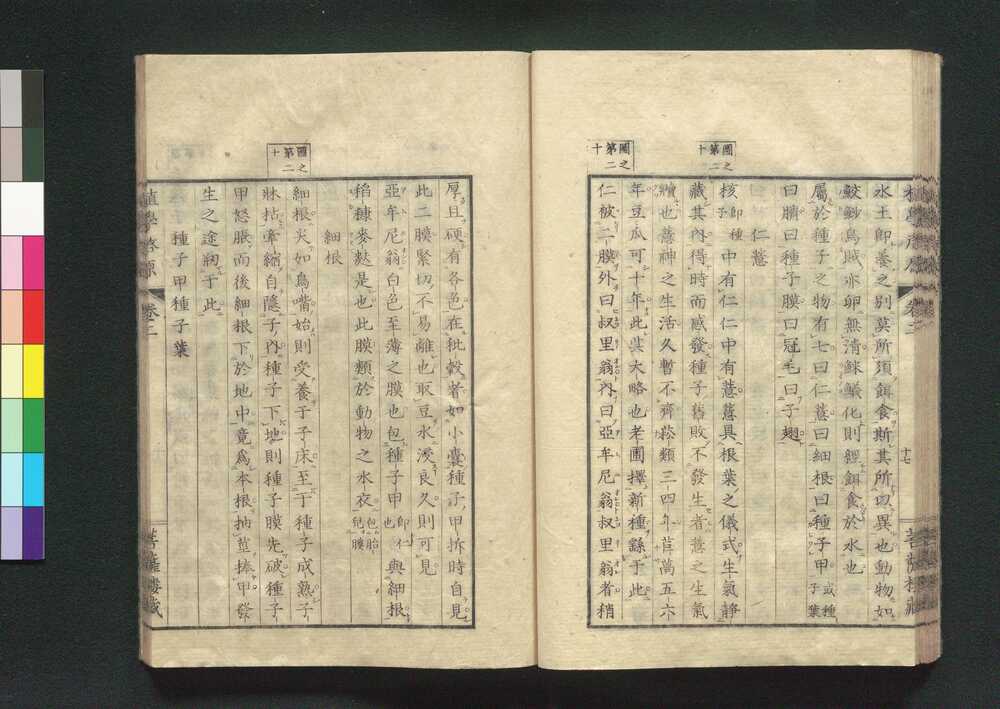 水土即養之別莫所須餌食斯其所以異也動物如
鮫魦烏賊亦卵無清鯟鱶化則鰓餌食於水也
屬於種子之物有七曰仁薏曰細根曰種子甲或種子葉
曰臍曰種子膜曰冠毛曰子翅
仁薏
圖第十二之
核即種子中有仁仁中有薏薏具根葉之儀式生氣静
藏其內得時而感發種子舊敗不發生者薏之生氣
也薏神之生活久暫不齊菘類三四年苣萵五六
年豆瓜可十年此其大略也老圃擇新種繇于此
圖第十二之
仁被二膜外曰叔里翁內曰亞牟尼翁叔里翁者稍
十七
厚且硬有各色在秕穀者如小囊種子甲拆時自見
此二膜緊切不易離也取豆水浸良久則可見
亞牟尼翁白色至薄之膜也包種子甲即仁也與細根
稻糠麥麩是也此膜類於動物之水衣包胎兒膜
細根
圖第十二之
細根尖如鳥嘴始則受養于子床至于種子成熟子
牀拈牽縮自隱子內種子下地則種子膜先破種子
甲怒脹而後細根下於地中竟爲本根抽莖捧甲發
生之途刱于此
種子甲種子葉
植學啓原
卷三
菩薩樓藏